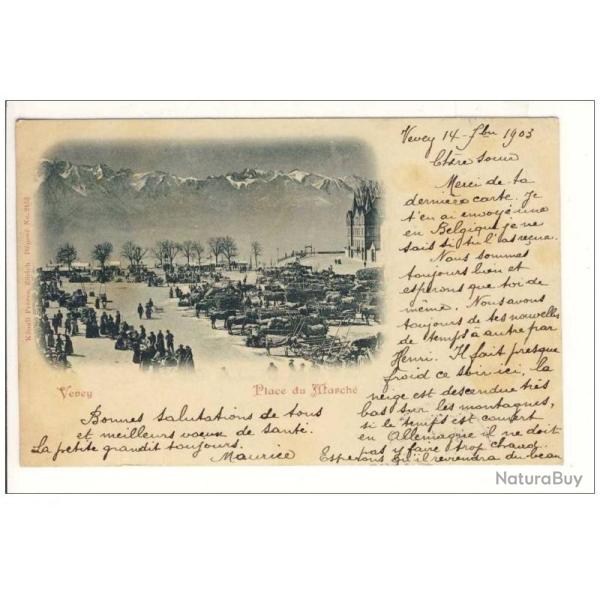 Vevey 14 - 7bre 1903
Chère soeur
Merci de ta
dernière carte. Je
t'en ai envoyé une
en Belgique, je ne
sais si tu l'as reçue.
Nous sommes
toujours bien et
espérons que toi de
même. Nous avons
toujours de tes nouvelles
de temps à autre par
Henri. Il fait presque
froid ce soir ici, la
neige est descendue très
bas sur les montagnes,
si le temps est couvert
en Allemagne il ne doit
pas y faire trop chaud.
Espérons qu'il reviendra du beau
Künzli Frères, Zürich Déposé No.
Vevey
Place du Marché
Bonnes salutations de tous
et meilleurs voeux de santé.
La petite grandit toujours.
Maurice
NaturaBuy